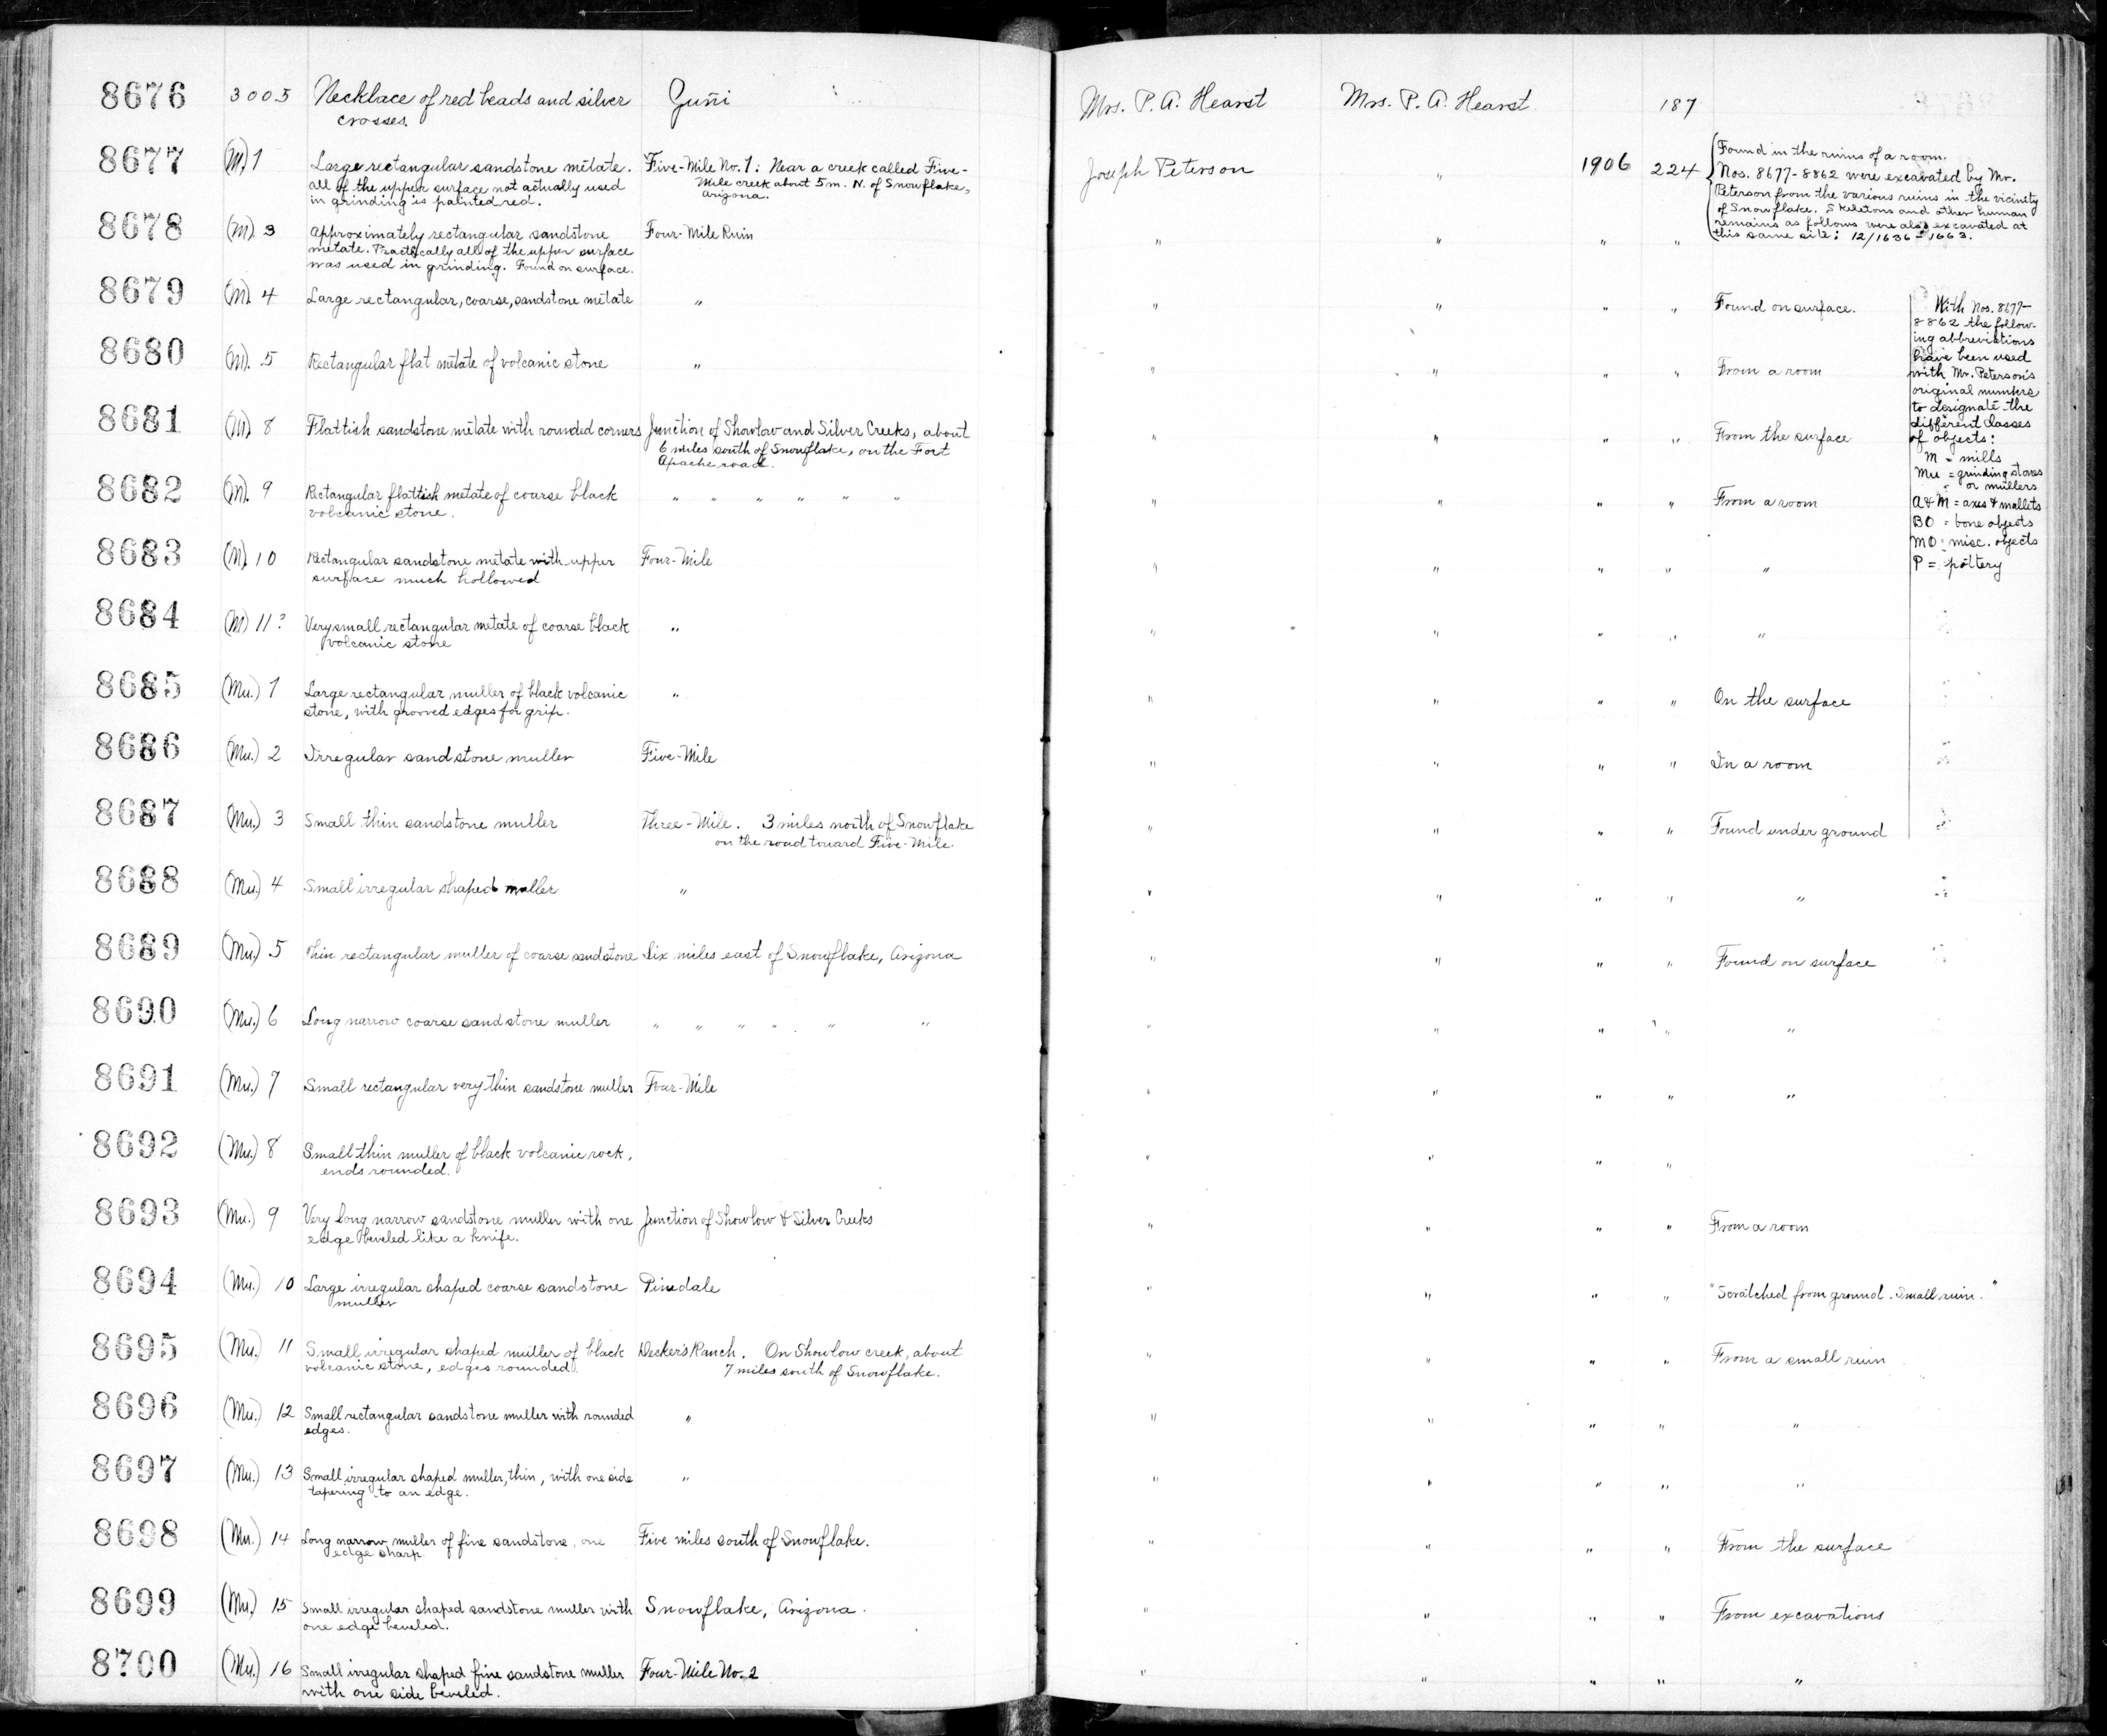 8676 3005 Necklace of red beads and silver Zuñi Mrs. P. A. Hearst Mrs. P. A. Hearst 187
crosses.
8677 (M.) 1 Large rectangular sandstone metate. Five-Mile No. 1: Near a creek called Five- Joseph Peterson " 1906 224 Found in the ruins of a room.
all of the upper surface not actually used Mile creek about 5 m. N. of Snowflake, Nos. 8677-8862 were excavated by Mr.
in grinding is painted red. Arizona. Peterson from the various ruins in the vicinity
of Snowflake. Skeletons and other human
remains as follows were also excavated at
this same site: 12/1636-1663.
8678 (M). 3 Approximately rectangular sandstone Four-Mile Ruin " " " "
metate. Practically all of the upper surface
was used in grinding. Found on surface.
8679 (M). 4 Large rectangular, coarse, sandstone metate " " " " " Found on surface.
With Nos. 8677-
8862 the follow-
ing abbreviations
have been used
with Mr. Peterson's
original numbers
to designate the
different classes
of objects:
M = mills
Mu = grinding stones
or mullers
A & M = axes & mallets
BO = bone objects
MO = misc. objects
P = pottery
8680 (M). 5 Rectangular flat metate of volcanic stone " " " " " From a room
8681 (M). 8 Flattish sandstone metate with rounded corners Junction of Showlow and Silver Creeks, about " " " " From the surface
6 miles south of Snowflake, on the Fort
Apache road.
8682 (M). 9 Rectangular flattish metate of coarse black " " " " " " " " " " From a room
volcanic stone.
8683 (M). 10 Rectangular sandstone metate with upper Four-Mile " " " " "
surface much hollowed
8684 (M) 11? Very small rectangular metate of coarse black " " " " " "
volcanic stone
8685 (Mu.) 1 Large rectangular muller of black volcanic " " " " " On the surface
stone, with grooved edges for grip.
8686 (Mu.) 2 Irregular sandstone muller Five-Mile " " " " In a room
8687 (Mu.) 3 Small thin sandstone muller Three-Mile. 3 miles north of Snowflake " " " " Found under ground
on the road toward Five-Mile.
8688 (Mu.) 4 Small irregular shaped muller " " " " " "
8689 (Mu.) 5 Thin rectangular muller of coarse sandstone Six miles east of Snowflake, Arizona " " " " Found on surface
8690 (Mu.) 6 Long narrow coarse sandstone muller " " " " " " " " " " "
8691 (Mu.) 7 Small rectangular very thin sandstone muller Four-Mile " " " " "
8692 (Mu.) 8 Small thin muller of black volcanic rock, " " " "
ends rounded.
8693 (Mu.) 9 Very long narrow sandstone muller with one Junction of Showlow & Silver Creeks " " " " From a room
edge beveled like a knife.
8694 (Mu.) 10 Large irregular shaped coarse sandstone Pinedale " " " " "Scratched from ground. Small ruin."
muller
8695 (Mu.) 11 Small irregular shaped muller of black Decker's Ranch. On Showlow creek, about " " " " From a small ruin
volcanic stone, edges rounded. 7 miles south of Snowflake.
8696 (Mu.) 12 Small rectangular sandstone muller with rounded " " " " " "
edges.
8697 (Mu.) 13 Small irregular shaped muller, thin, with one side " " " " " "
tapering to an edge.
8698 (Mu.) 14 Long narrow muller of fine sandstone, one Five miles south of Snowflake. " " " " From the surface
edge sharp.
8699 (Mu.) 15 Small irregular shaped sandstone muller with Snowflake, Arizona. " " " " From excavations
one edge beveled.
8700 (Mu.) 16 Small irregular shaped fine sandstone muller Four-Mile No. 2 " " " " "
with one side beveled.